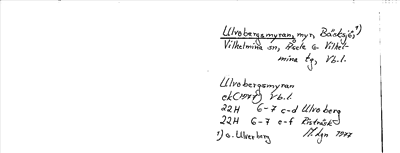 Ulvobergsmyran, myr, Bäcksjö,¹)
Vilhelmina sn, Åsele o. Vilhel-
mina tg, Vb.l.
Ulvobergsmyran
ek(1947) Vb.l.
22H 6-7 c-d Ulvoberg
22H 6-7 e-f Risträsk
1) o. Ulverberg
M.Lgn 1977